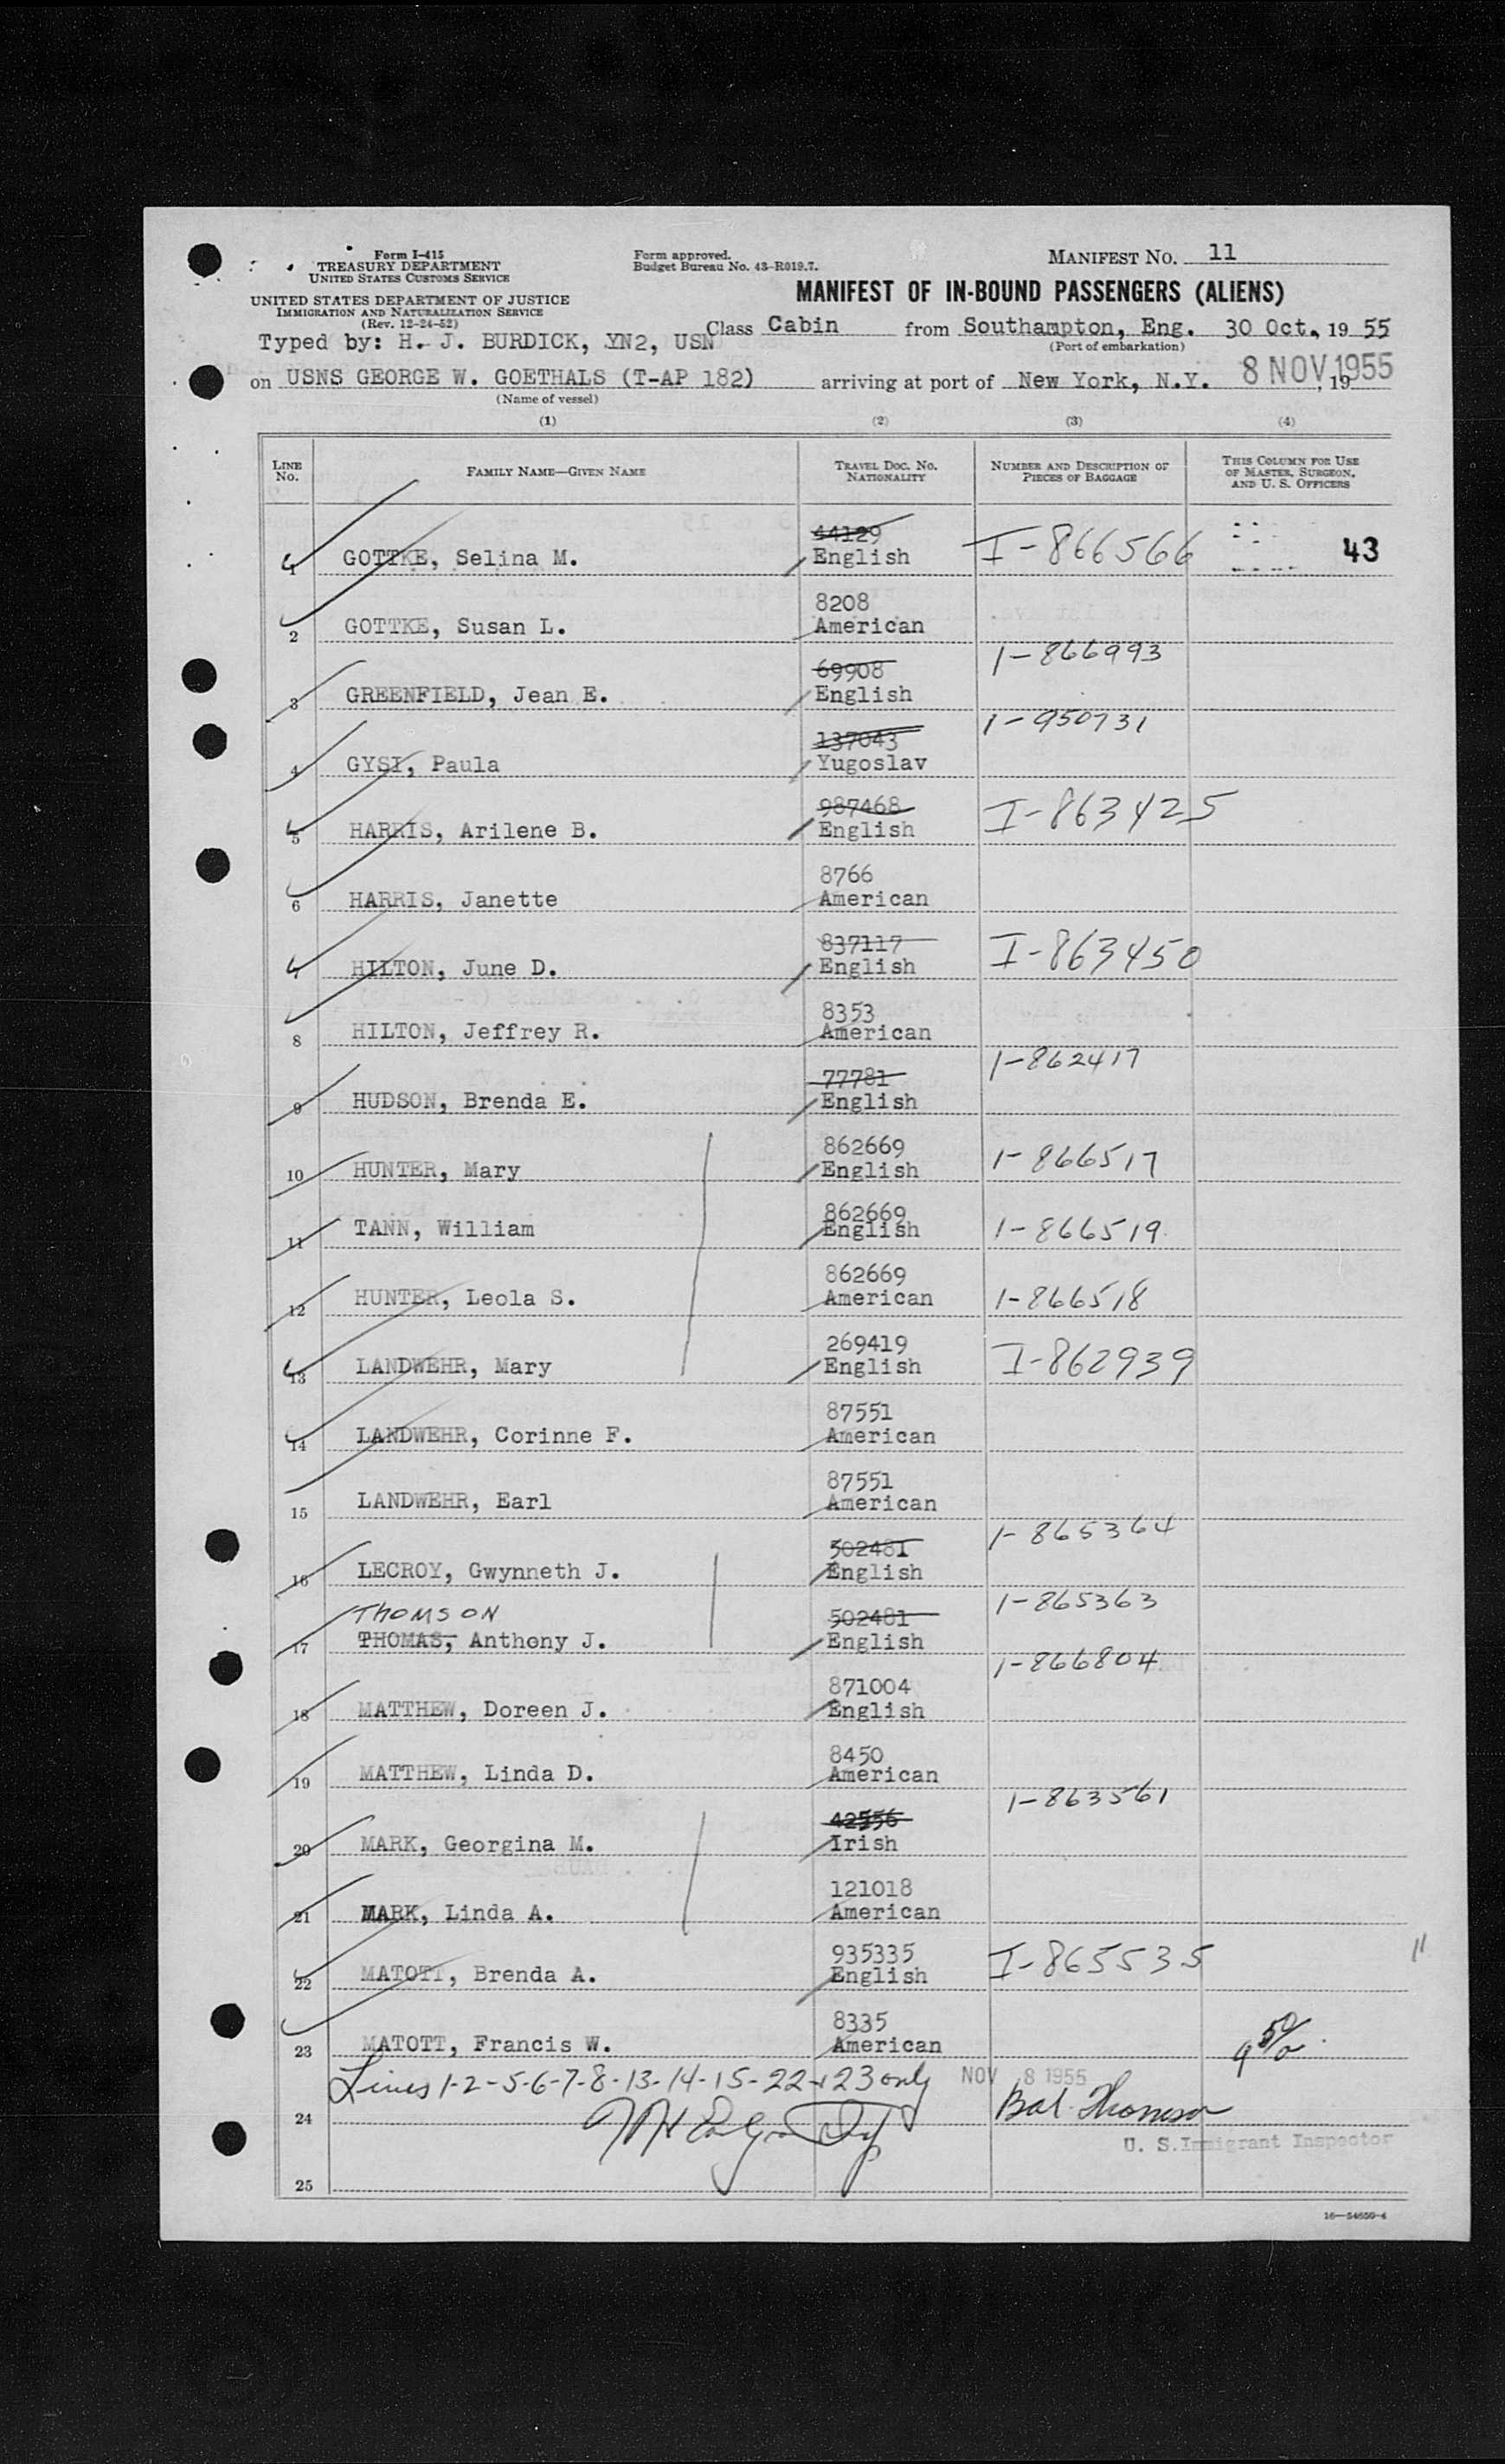 Form I-415
TREASURY DEPARTMENT
UNITED STATES CUSTOMS SERVICE
UNITED STATES DEPARTMENT OF JUSTICE
IMMIGRATION AND NATURALIZATION SERVICE
(Rev. 12-24-52)
Form approved.
Budget Bureau No. 43-R019.7.
MANIFEST No. 11
MANIFEST OF IN-BOUND PASSENGERS (ALIENS)
Typed by: H. J. BURDICK, YN2, USN
Class Cabin from Southampton, Eng. 30 Oct., 19 55
(Port of embarkation)
on USNS GEORGE W. GOETHALS (T-AP 182) arriving at port of New York, N.Y. 8 NOV 1955, 19
(Name of vessel)
(1) (2) (3) (4)
LINE No. FAMILY NAME—GIVEN NAME TRAVEL DOC. NO. NATIONALITY NUMBER AND DESCRIPTION OF PIECES OF BAGGAGE THIS COLUMN FOR USE OF MASTER, SURGEON, AND U. S. OFFICERS
44129
1 GOTTKE, Selina M. English I-866566 43
8208
2 GOTTKE, Susan L. American
69908 1-866993
3 GREENFIELD, Jean E. English
137043 1-950731
4 GYSI, Paula Yugoslav
987468
5 HARRIS, Arilene B. English I-863425
8766
6 HARRIS, Janette American
837117
7 HILTON, June D. English I-863450
8353
8 HILTON, Jeffrey R. American
77781 1-862417
9 HUDSON, Brenda E. English
862669
10 HUNTER, Mary English 1-866517
862669
11 TANN, William English 1-866519
862669
12 HUNTER, Leola S. American 1-866518
269419
13 LANDWEHR, Mary English I-862939
87551
14 LANDWEHR, Corinne F. American
87551
15 LANDWEHR, Earl American
502481 1-865364
16 LECROY, Gwynneth J. English
THOMSON 502481 1-865363
17 THOMAS, Anthony J. English
871004 1-866804
18 MATTHEW, Doreen J. English
8450
19 MATTHEW, Linda D. American
1-863561
20 MARK, Georgina M. Irish
121018
21 MARK, Linda A. American
935335
22 MATOTT, Brenda A. English I-865535 11
8335
23 MATOTT, Francis W. American
Lines 1-2-5-6-7-8-13-14-15-22+23 only NOV 8 1955
24 Bal. Thomson
U. S. Immigrant Inspector
25
16—54650-4